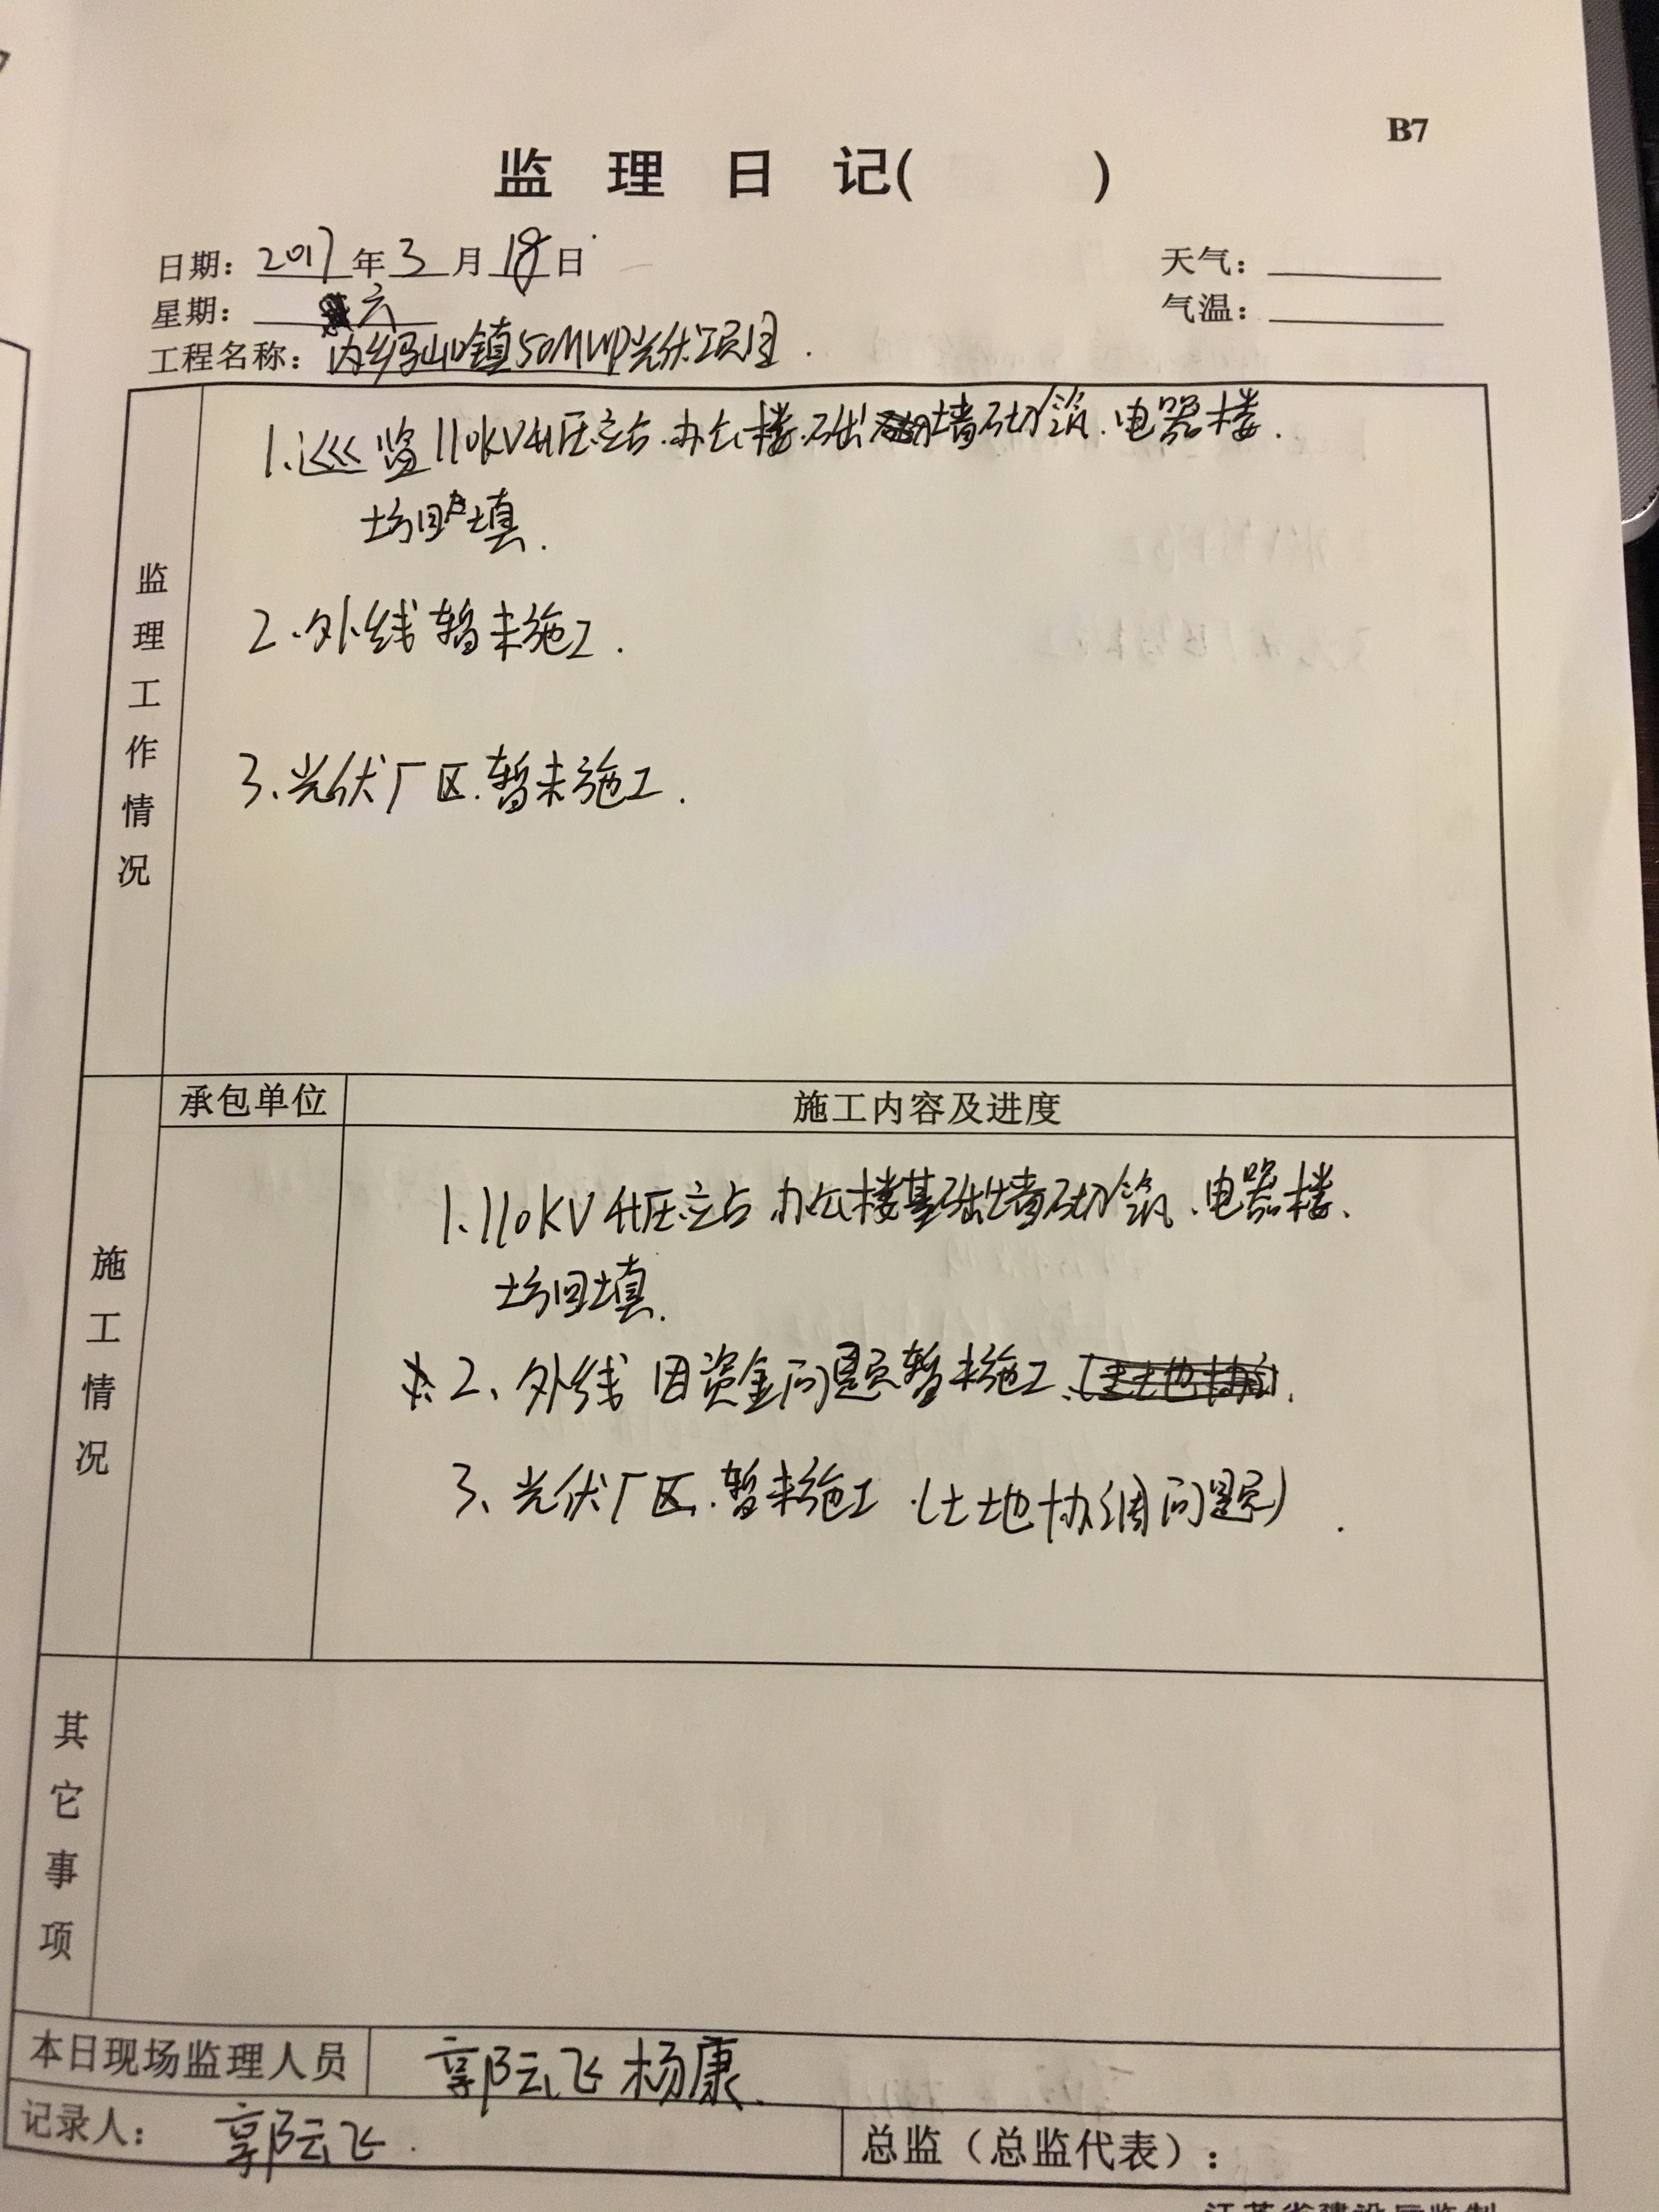 B7
监理日记( )
日期: 2017年3月18日
天气:
星期: 六
气温:
工程名称: 内乡马山口镇50MWP光伏项目.
监理工作情况
1、巡监110KV升压站.办公楼.础墙砌筑.电器楼.
坊回填.
2、外线暂未施工.
3、光伏厂区.暂未施工.
承包单位
施工内容及进度
施工情况
1、110KV升压站 办公楼基础墙砌筑、电器楼、
坊回填.
2、外线因资金问题暂未施工
3、光伏厂区.暂未施工.(土地协调问题).
其它事项
本日现场监理人员
郭云飞 杨康.
记录人: 郭云飞.
总监(总监代表):
江苏省建设厅监制